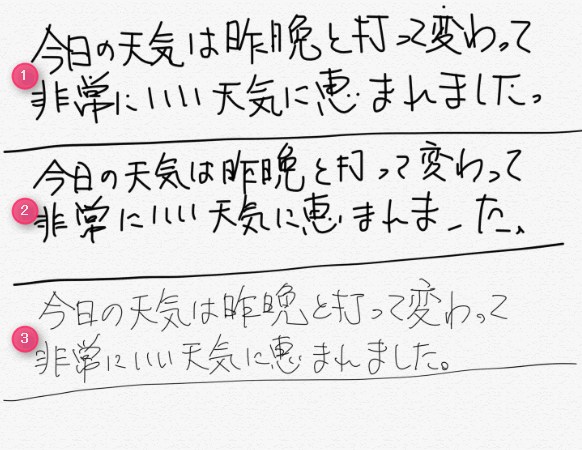 今日の天気は昨晩と打って変わって
1
非常にいい天気に恵まれました。
今日の天気は昨晩と打って変わって
2
非常にいい天気に恵まれま した、
3
今日の天気は昨晩と打って変わって
非常にいい天気に恵まれました。